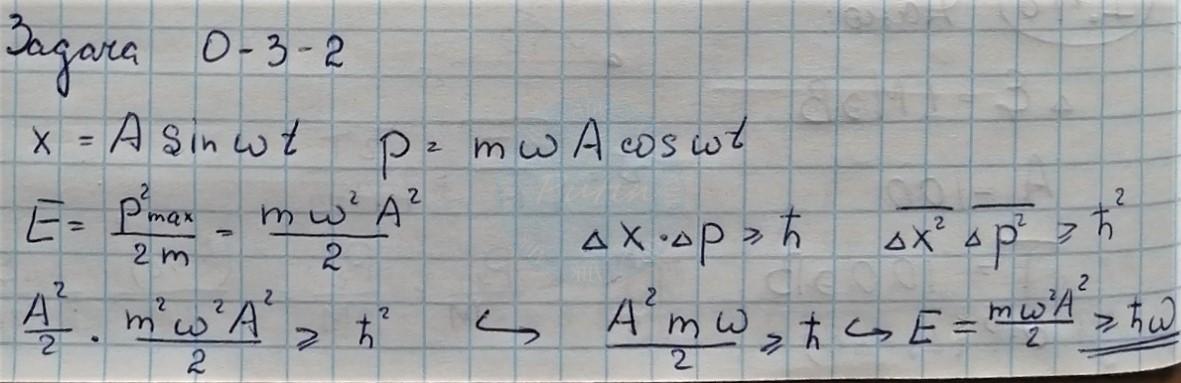 Задача 0-3-2
x = A sin ωt p = mωA cos ωt
E = p²max / 2m = mω²A² / 2 Δx·Δp ≥ ħ \overline{Δx²} \overline{Δp²} ≥ ħ²
A²/2 · m²ω²A²/2 ≥ ħ² ↪ A²mω/2 ≥ ħ ↪ E = mω²A²/2 ≥ ħω